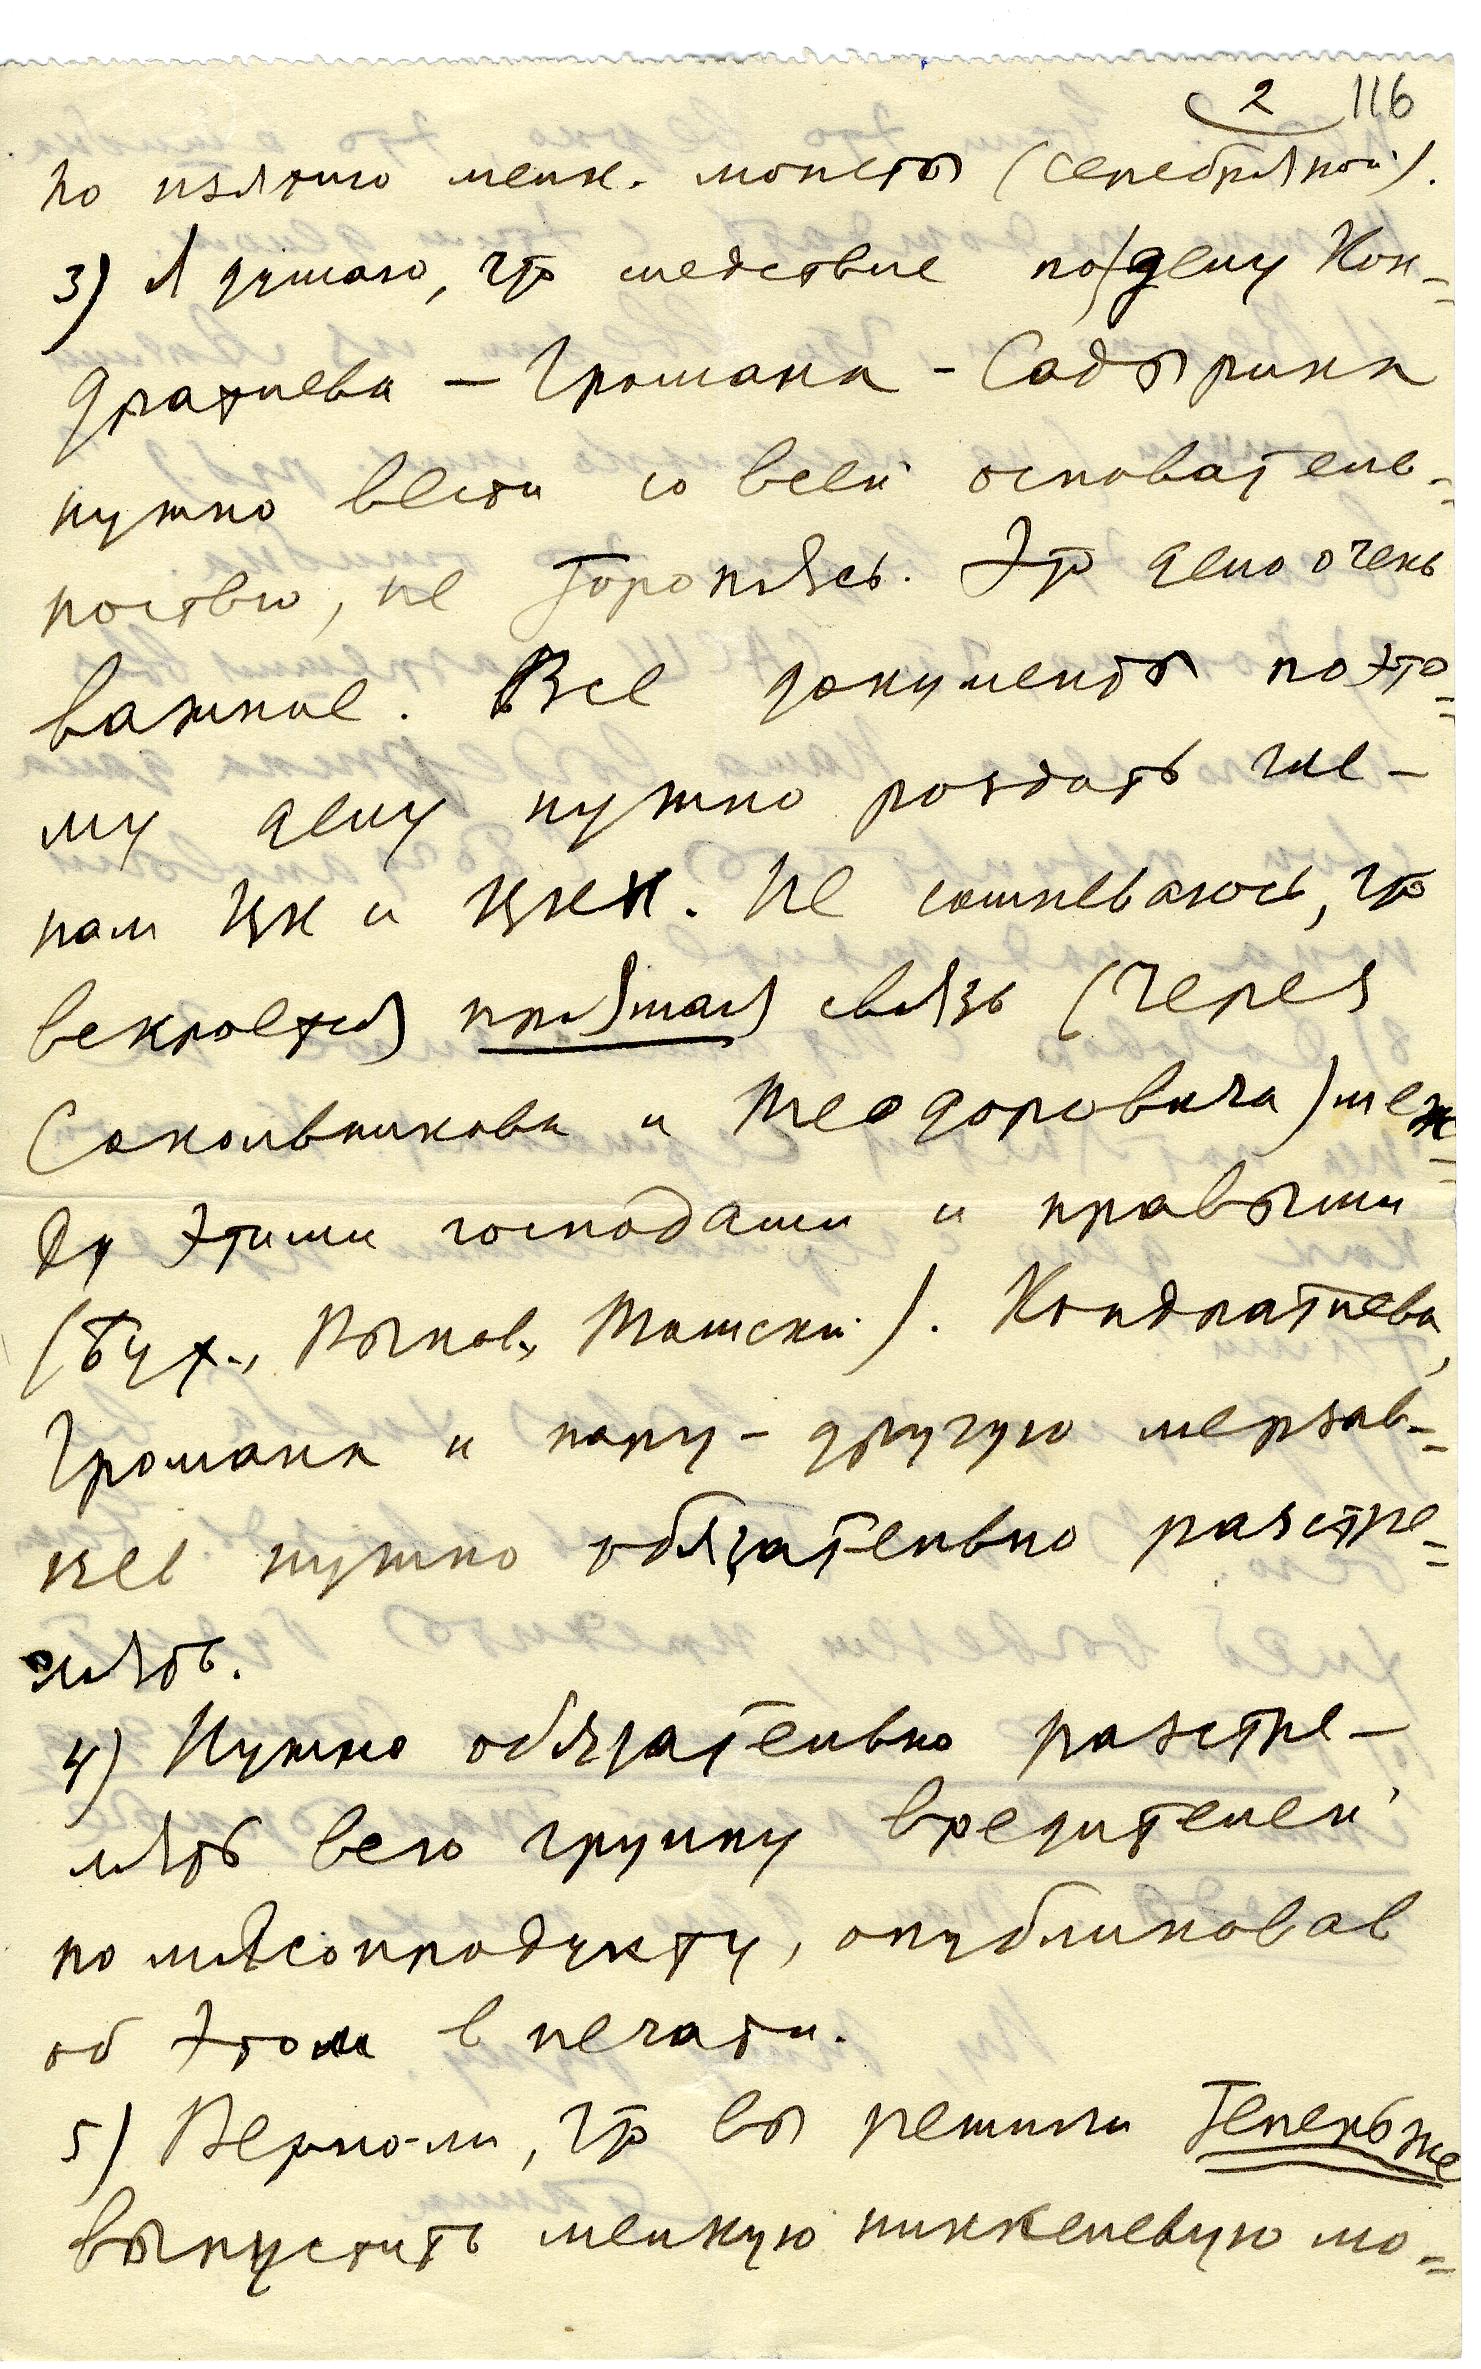 2 116
по изъятию мелк. монеты (серебряной).
3) Я думаю, что следствие по делу Кон=
дратьева – Громана – Садырина
нужно вести со всей основатель=
ностью, не торопясь. Это дело очень
важное. Все документы по это=
му делу нужно раздать чле–
нам ЦК и ЦКК. Не сомневаюсь, что
вскроется прямая связь (через
Сокольникова и Теодоровича) меж=
ду этими господами и правыми
(Бух., Рыков, Томский). Кондратьева,
Громана и пару–другую мерзав=
цев нужно обязательно расстре=
лять.
4) Нужно обязательно расстре–
лять всю группу вредителей
по мясопродукту, опубликовав
об этом в печати.
5) Верно-ли, что вы решили теперь же
выпустить мелкую никкелевую мо=